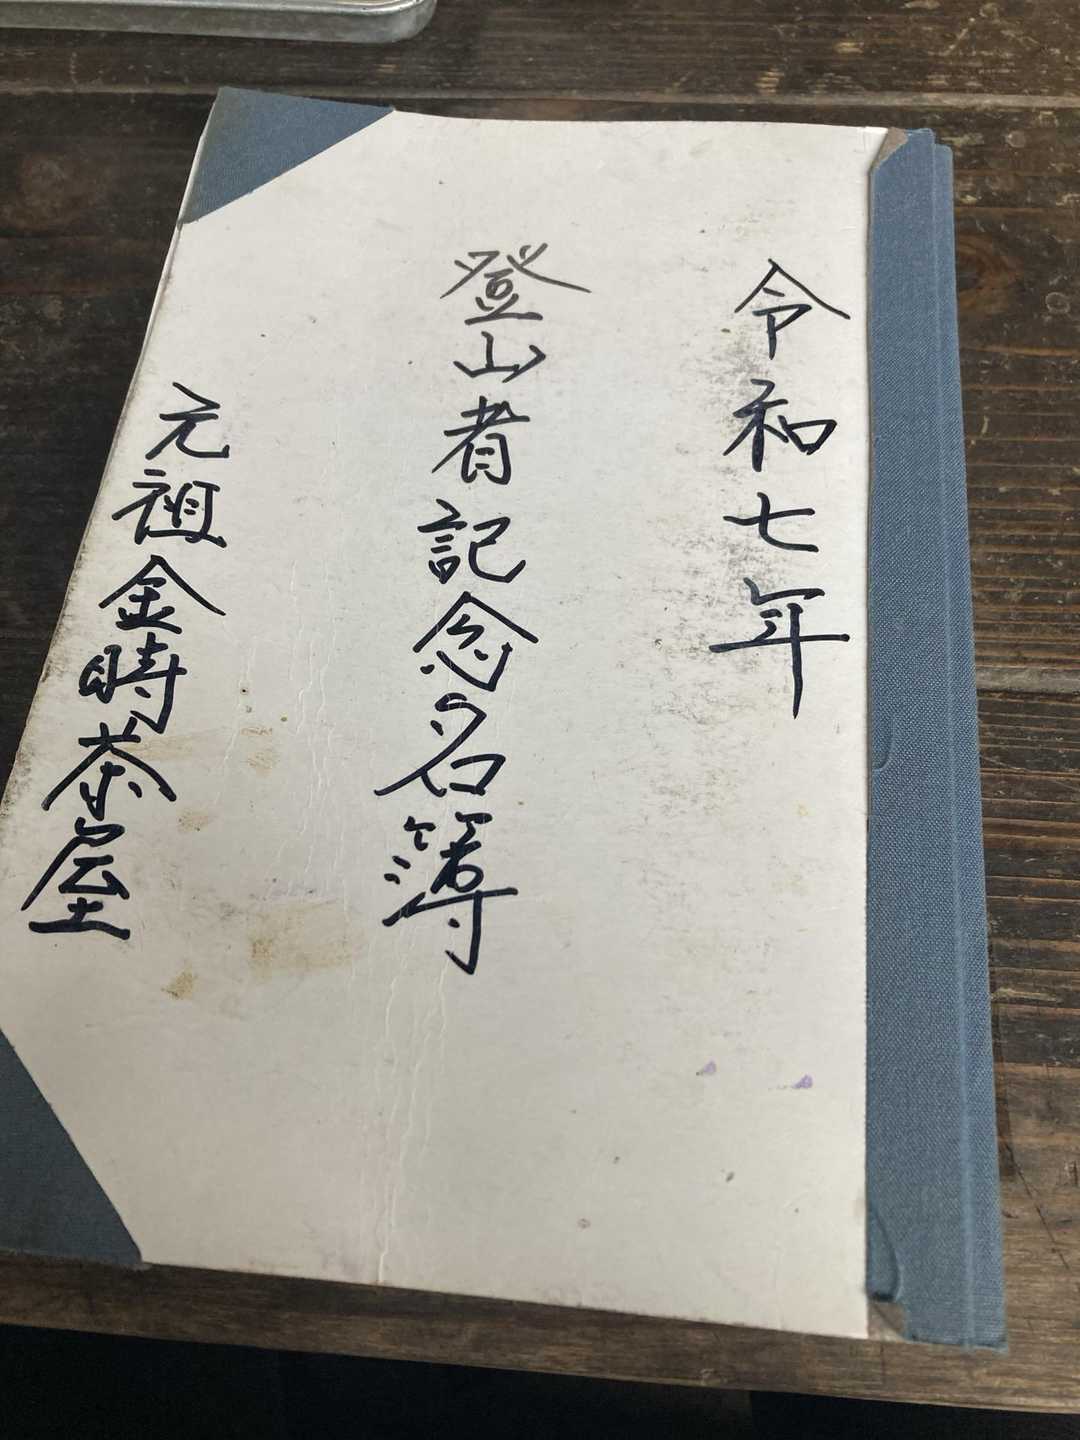 令和七年
登山者記念名簿
元祖金時茶屋